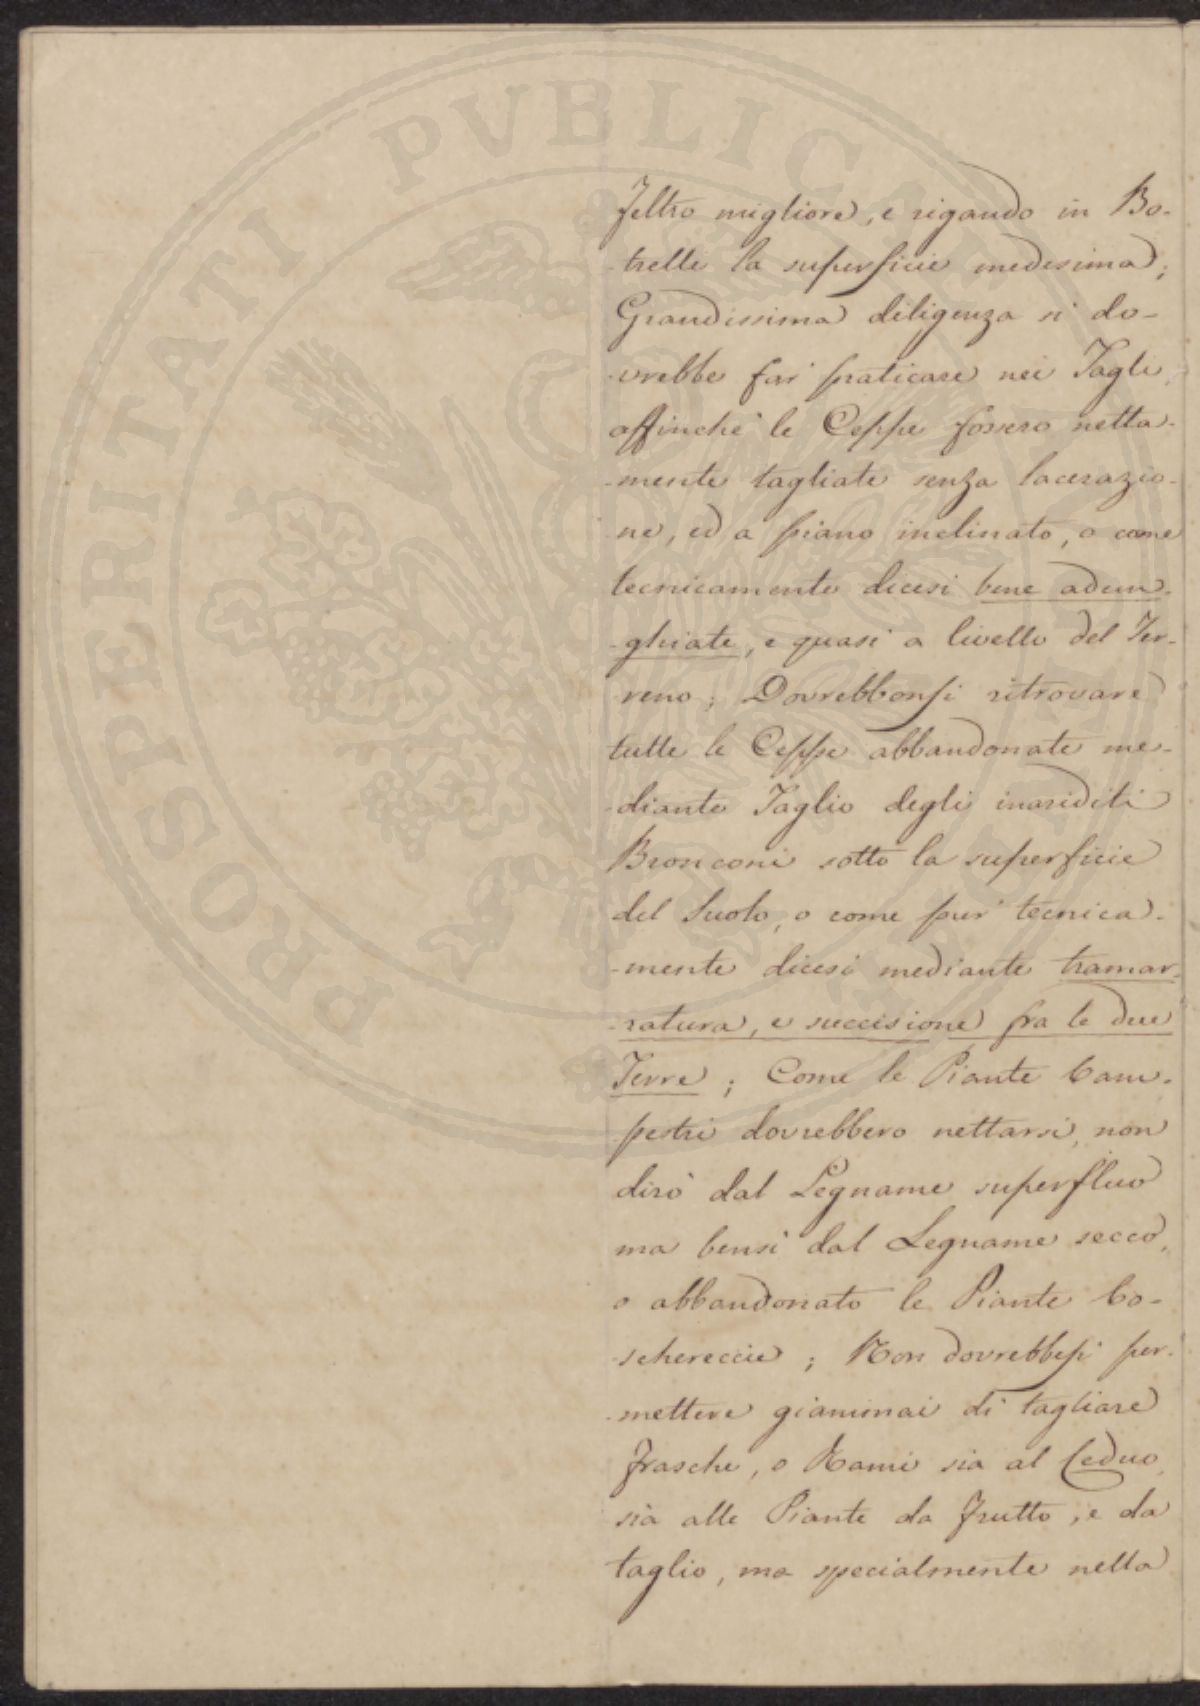 PROSPERITATI PUBLICAE
feltro migliore, e rigando in Bo-
-trelle la superficie medesima;
Grandissima diligenza si do-
-vrebbe far praticare nei Tagli,
affinchè le Ceppe fossero netta-
-mente tagliate senza lacerazio-
-ne, ed a piano inclinato, o come
tecnicamente dicesi bene adun-
-ghiate, e quasi a livello del Ter-
-reno; Dovrebbonsi ritrovare
tutte le Ceppe abbandonate me-
-diante Taglio degli inariditi
Bronconi sotto la superficie
del Suolo, o come pur tecnica-
-mente dicesi mediante tramar-
-ratura, e succisione fra le due
Terre; Come le Piante Cam-
-pestri dovrebbero nettarsi, non
dirò dal Legname superfluo
ma bensì dal Legname secco,
o abbandonato le Piante bo-
-schereccie; Non dovrebbesi per-
-mettere giammai di tagliare
frasche, o Rami sia al Ceduo,
sia alle Piante da frutto, e da
taglio, ma specialmente nella